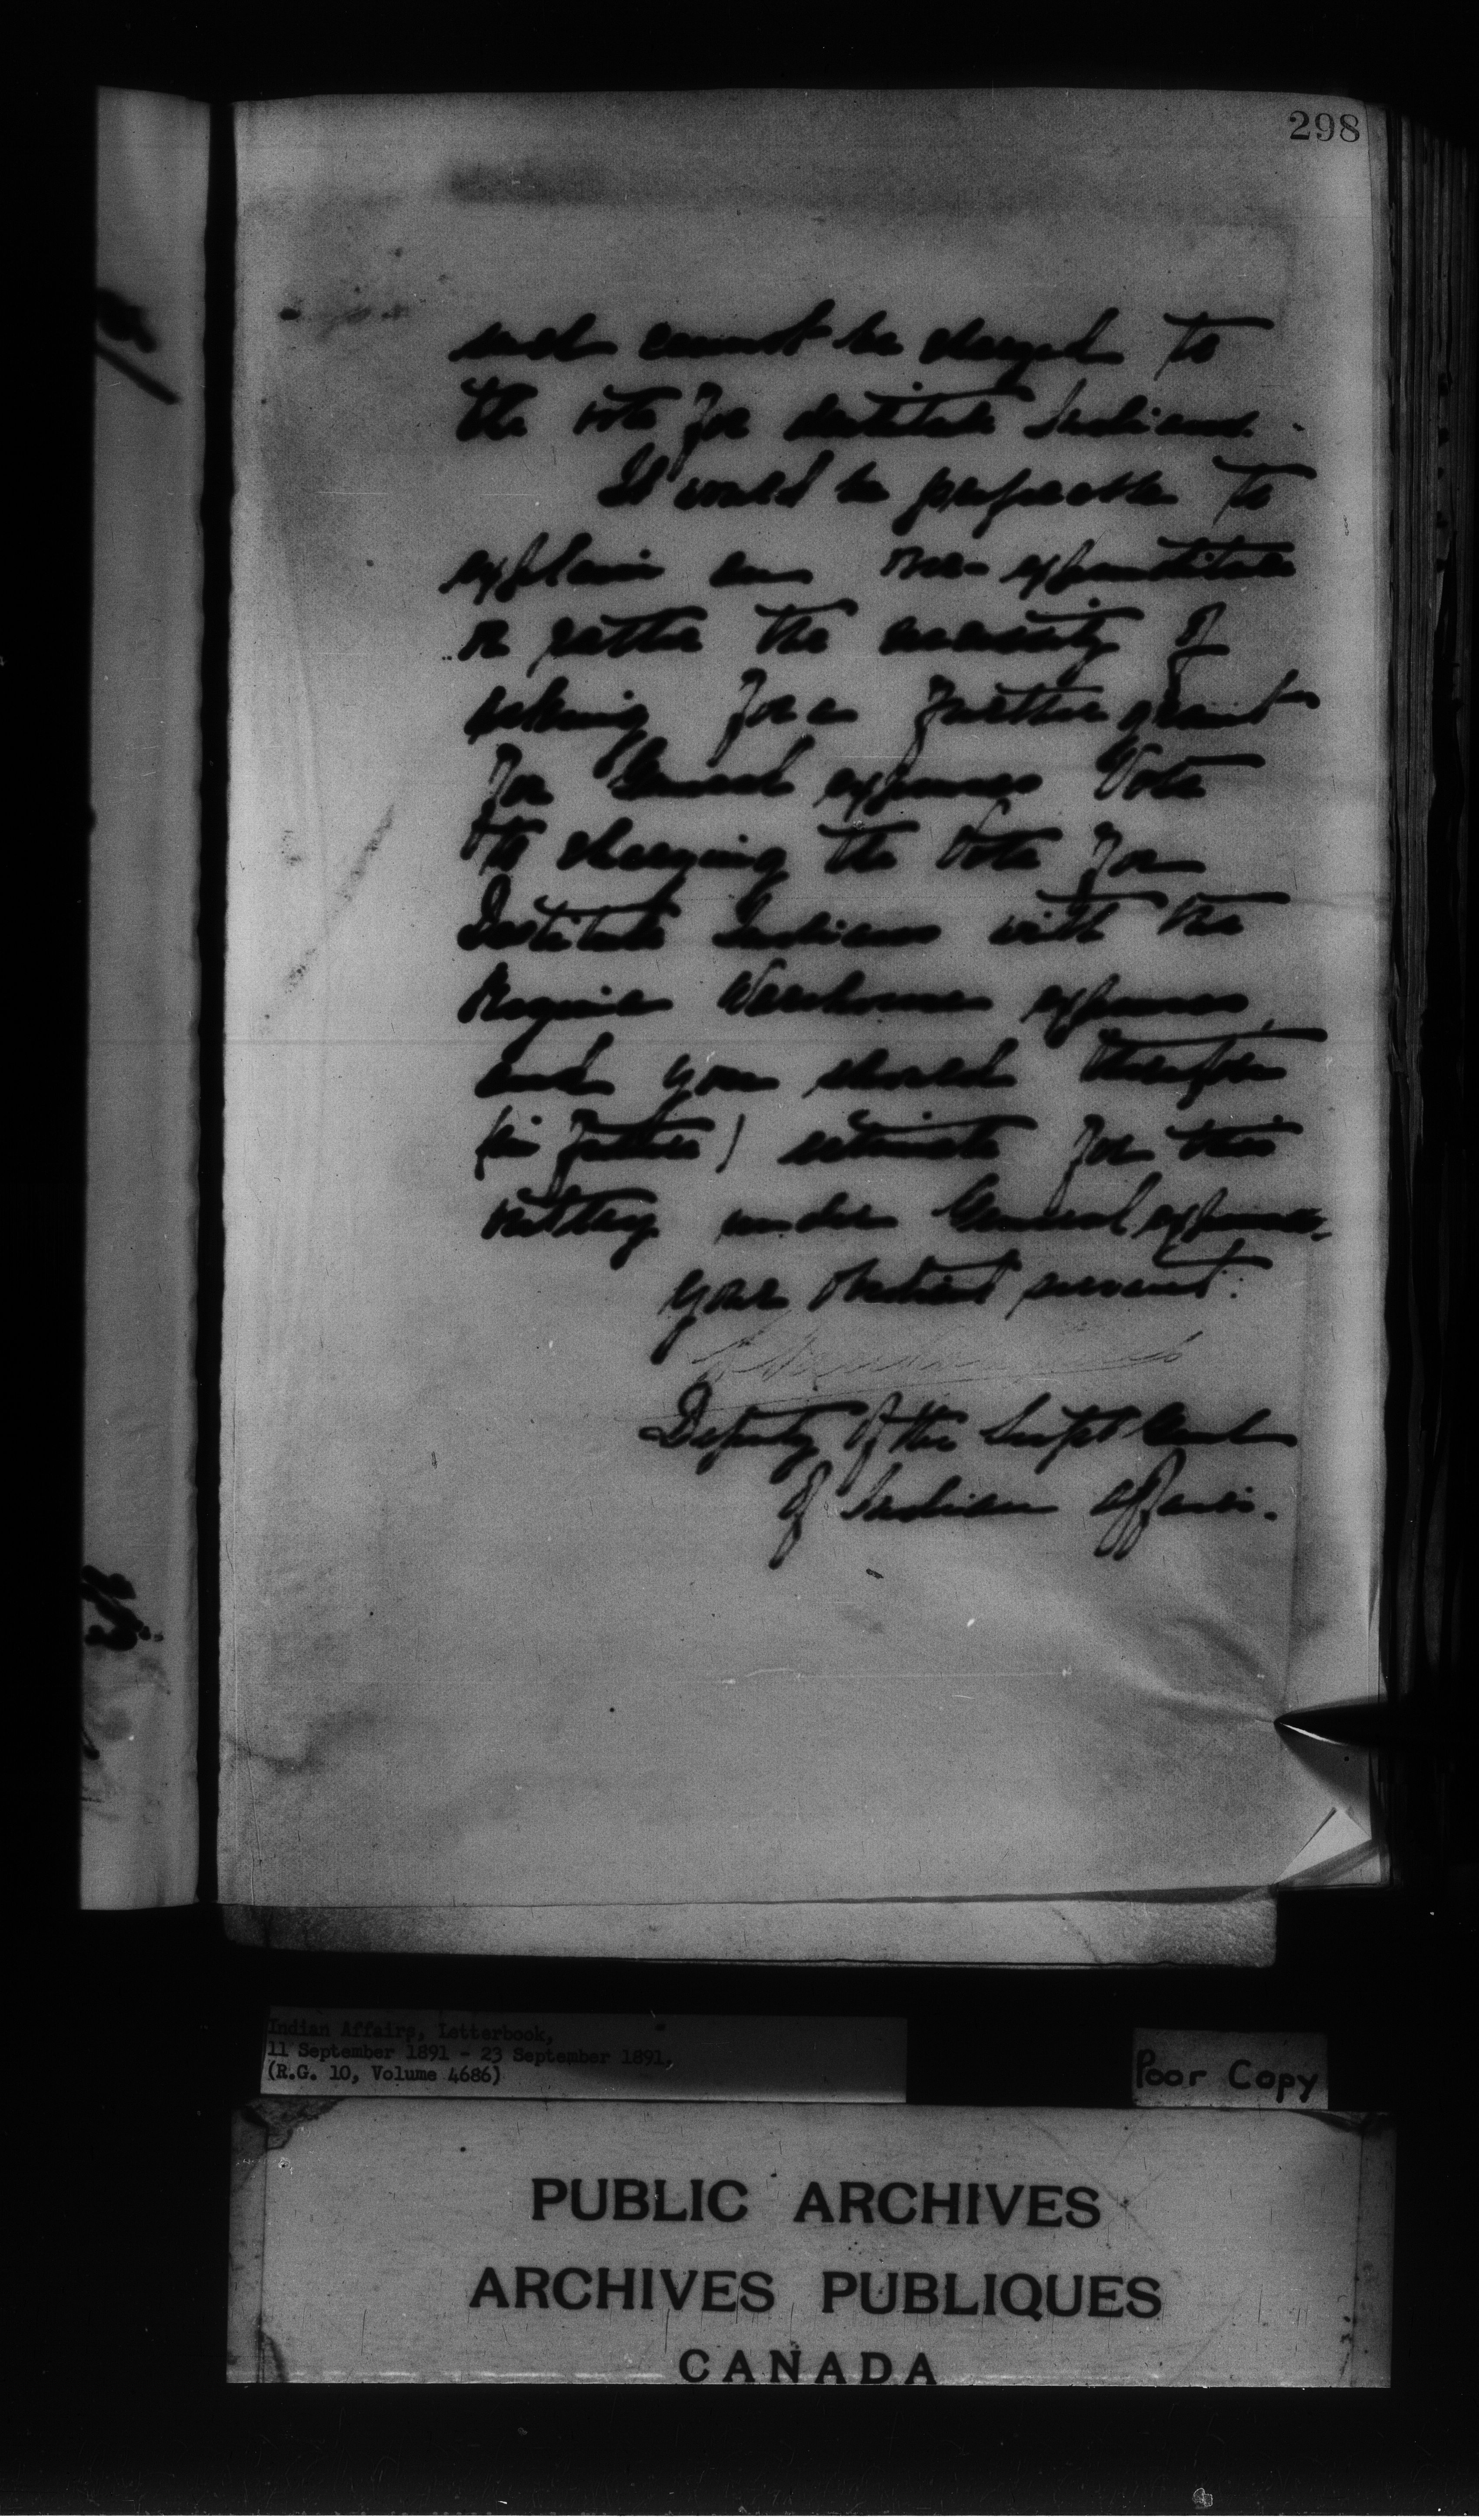 298
such cannot be charged to
the vote for destitute Indians.
It would be preferable to
explain an over-expenditure
or rather the necessity of
asking for a further grant
for General expenses Vote
to charging the Vote for
Destitute Indians with the
Regina Warehouse expenses,
and you should therefore
(in future) estimate for this
outlay under General expenses.
your obedient servant.
Deputy of the Supt Genl
of Indian Affairs.
Indian Affairs, Letterbook,
11 September 1891 - 23 September 1891,
(R.G. 10, Volume 4686)
Poor Copy
PUBLIC ARCHIVES
ARCHIVES PUBLIQUES
CANADA